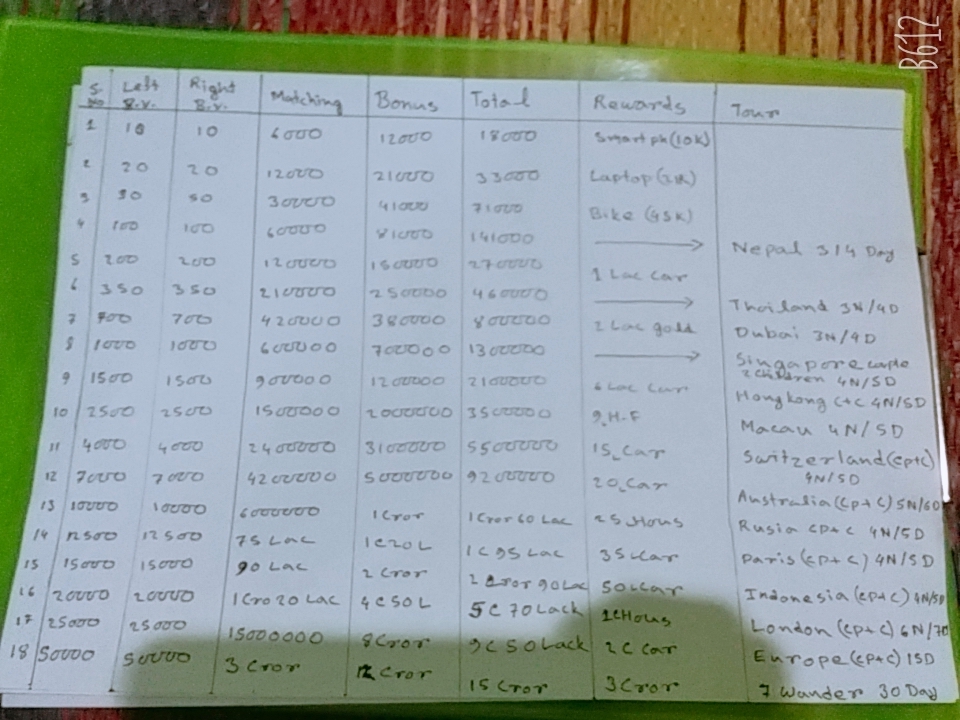 S. No Left B.V. Right B.V. Matching Bonus Total Rewards Tour
1 10 10 6000 12000 18000 Smart ph(10K)
2 20 20 12000 21000 33000 Laptop
3 50 50 30000 41000 71000 Bike (45K)
4 100 100 60000 81000 141000 → Nepal 3/4 Day
5 200 200 120000 150000 270000 1 Lac Car
6 350 350 210000 250000 460000 → Thailand 3N/4D
7 700 700 420000 380000 800000 2 Lac gold Dubai 3N/4D
8 1000 1000 600000 700000 1300000 → Singapore 2 Children 4N/5D
9 1500 1500 900000 1200000 2100000 6 Lac Car Hongkong C+C 4N/5D
10 2500 2500 1500000 2000000 3500000 9.H.F Macau 4N/5D
11 4000 4000 2400000 3100000 5500000 15LCar Switzerland(cp+c) 4N/5D
12 7000 7000 4200000 5000000 9200000 20LCar Australia(cp+c) 5N/6D
13 10000 10000 6000000 1Cror 1Cror60 Lac 25Hous Rusia cp+c 4N/5D
14 12500 12500 75 Lac 1C20L 1C 95 Lac 35LCar Paris(cp+c) 4N/5D
15 15000 15000 90 Lac 2 Cror 2 Cror 90Lac 50LCar Indonesia(cp+c) 4N/5D
16 20000 20000 1Cro20 Lac 4C50L 5C 70Lack 1CHous London(cp+c) 6N/7D
17 25000 25000 15000000 8Cror 9C50Lack 2C Car Europe(cp+c) 15D
18 50000 50000 3 Cror 12Cror 15Cror 3Cror 7 Wander 30Day
B612